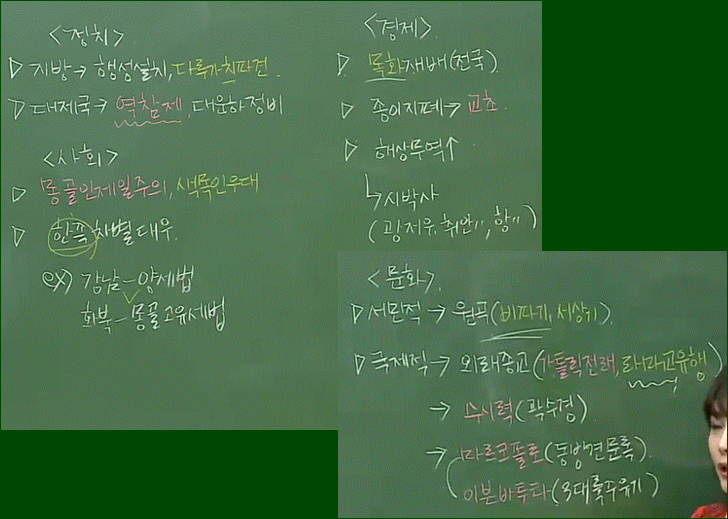 <정치>
▷ 지방→행성설치, 다루가치파견.
▷ 대제국→역참제, 대운하정비
<사회>
▷ 몽골인제일주의, 색목인우대
▷ 한족차별대우.
ex) 강남-양세법
화북-몽골고유세법
<경제>
▷ 목화재배(전국).
▷ 종이지폐→교초.
▷ 해상무역↑
↳시박사
(광저우, 취안〃, 항〃)
<문화>
▷서민적→원곡(비파기, 서상기).
▷국제적→외래종교(가톨릭전래, 라마교유행)
→수시력(곽수경)
→마르코폴로(동방견문록).
이븐바투타(3대륙주유기)